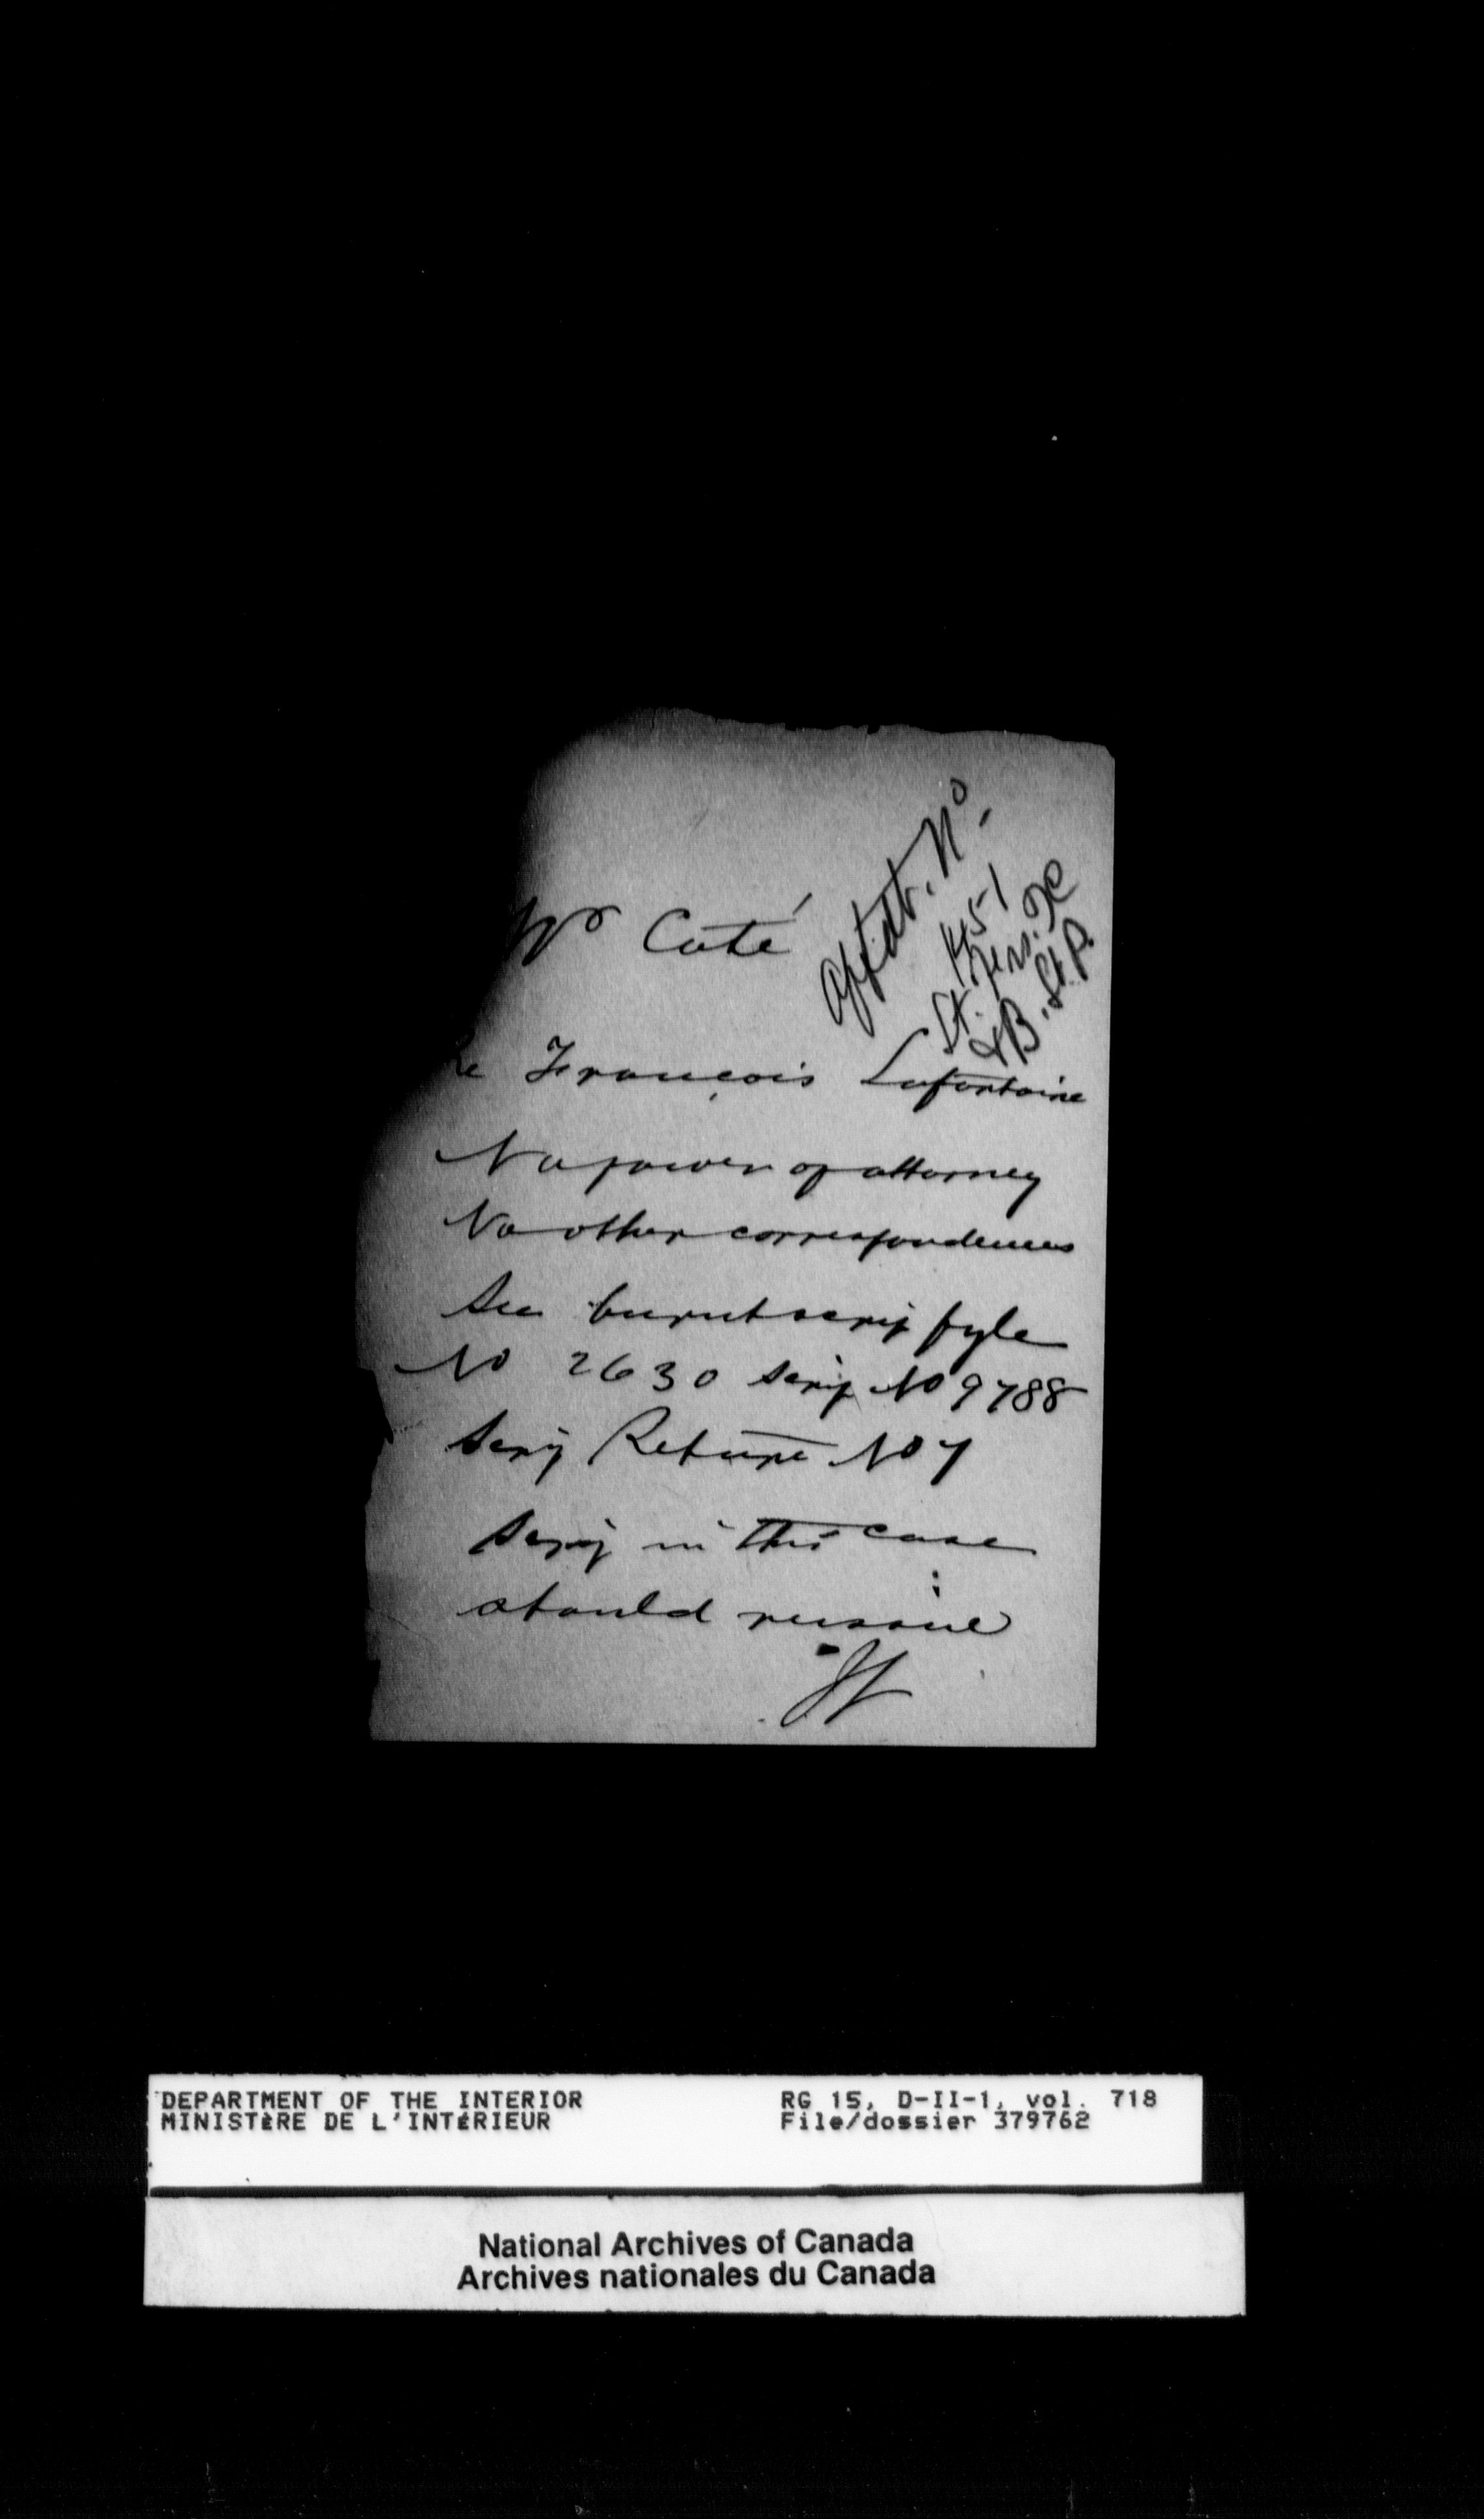 Mr Coté
Affidt. No.
1451
St. Frs. X
& B. St. P.
Re François Lafontaine
No power of attorney
No other correspondences
See burnt scrip fyle
No 2630 scrip No 9788
Scrip Return No 7
Scrip in this case
should reissue
DEPARTMENT OF THE INTERIOR
MINISTÈRE DE L'INTÉRIEUR
RG 15, D-II-1, vol. 718
File/dossier 379762
National Archives of Canada
Archives nationales du Canada